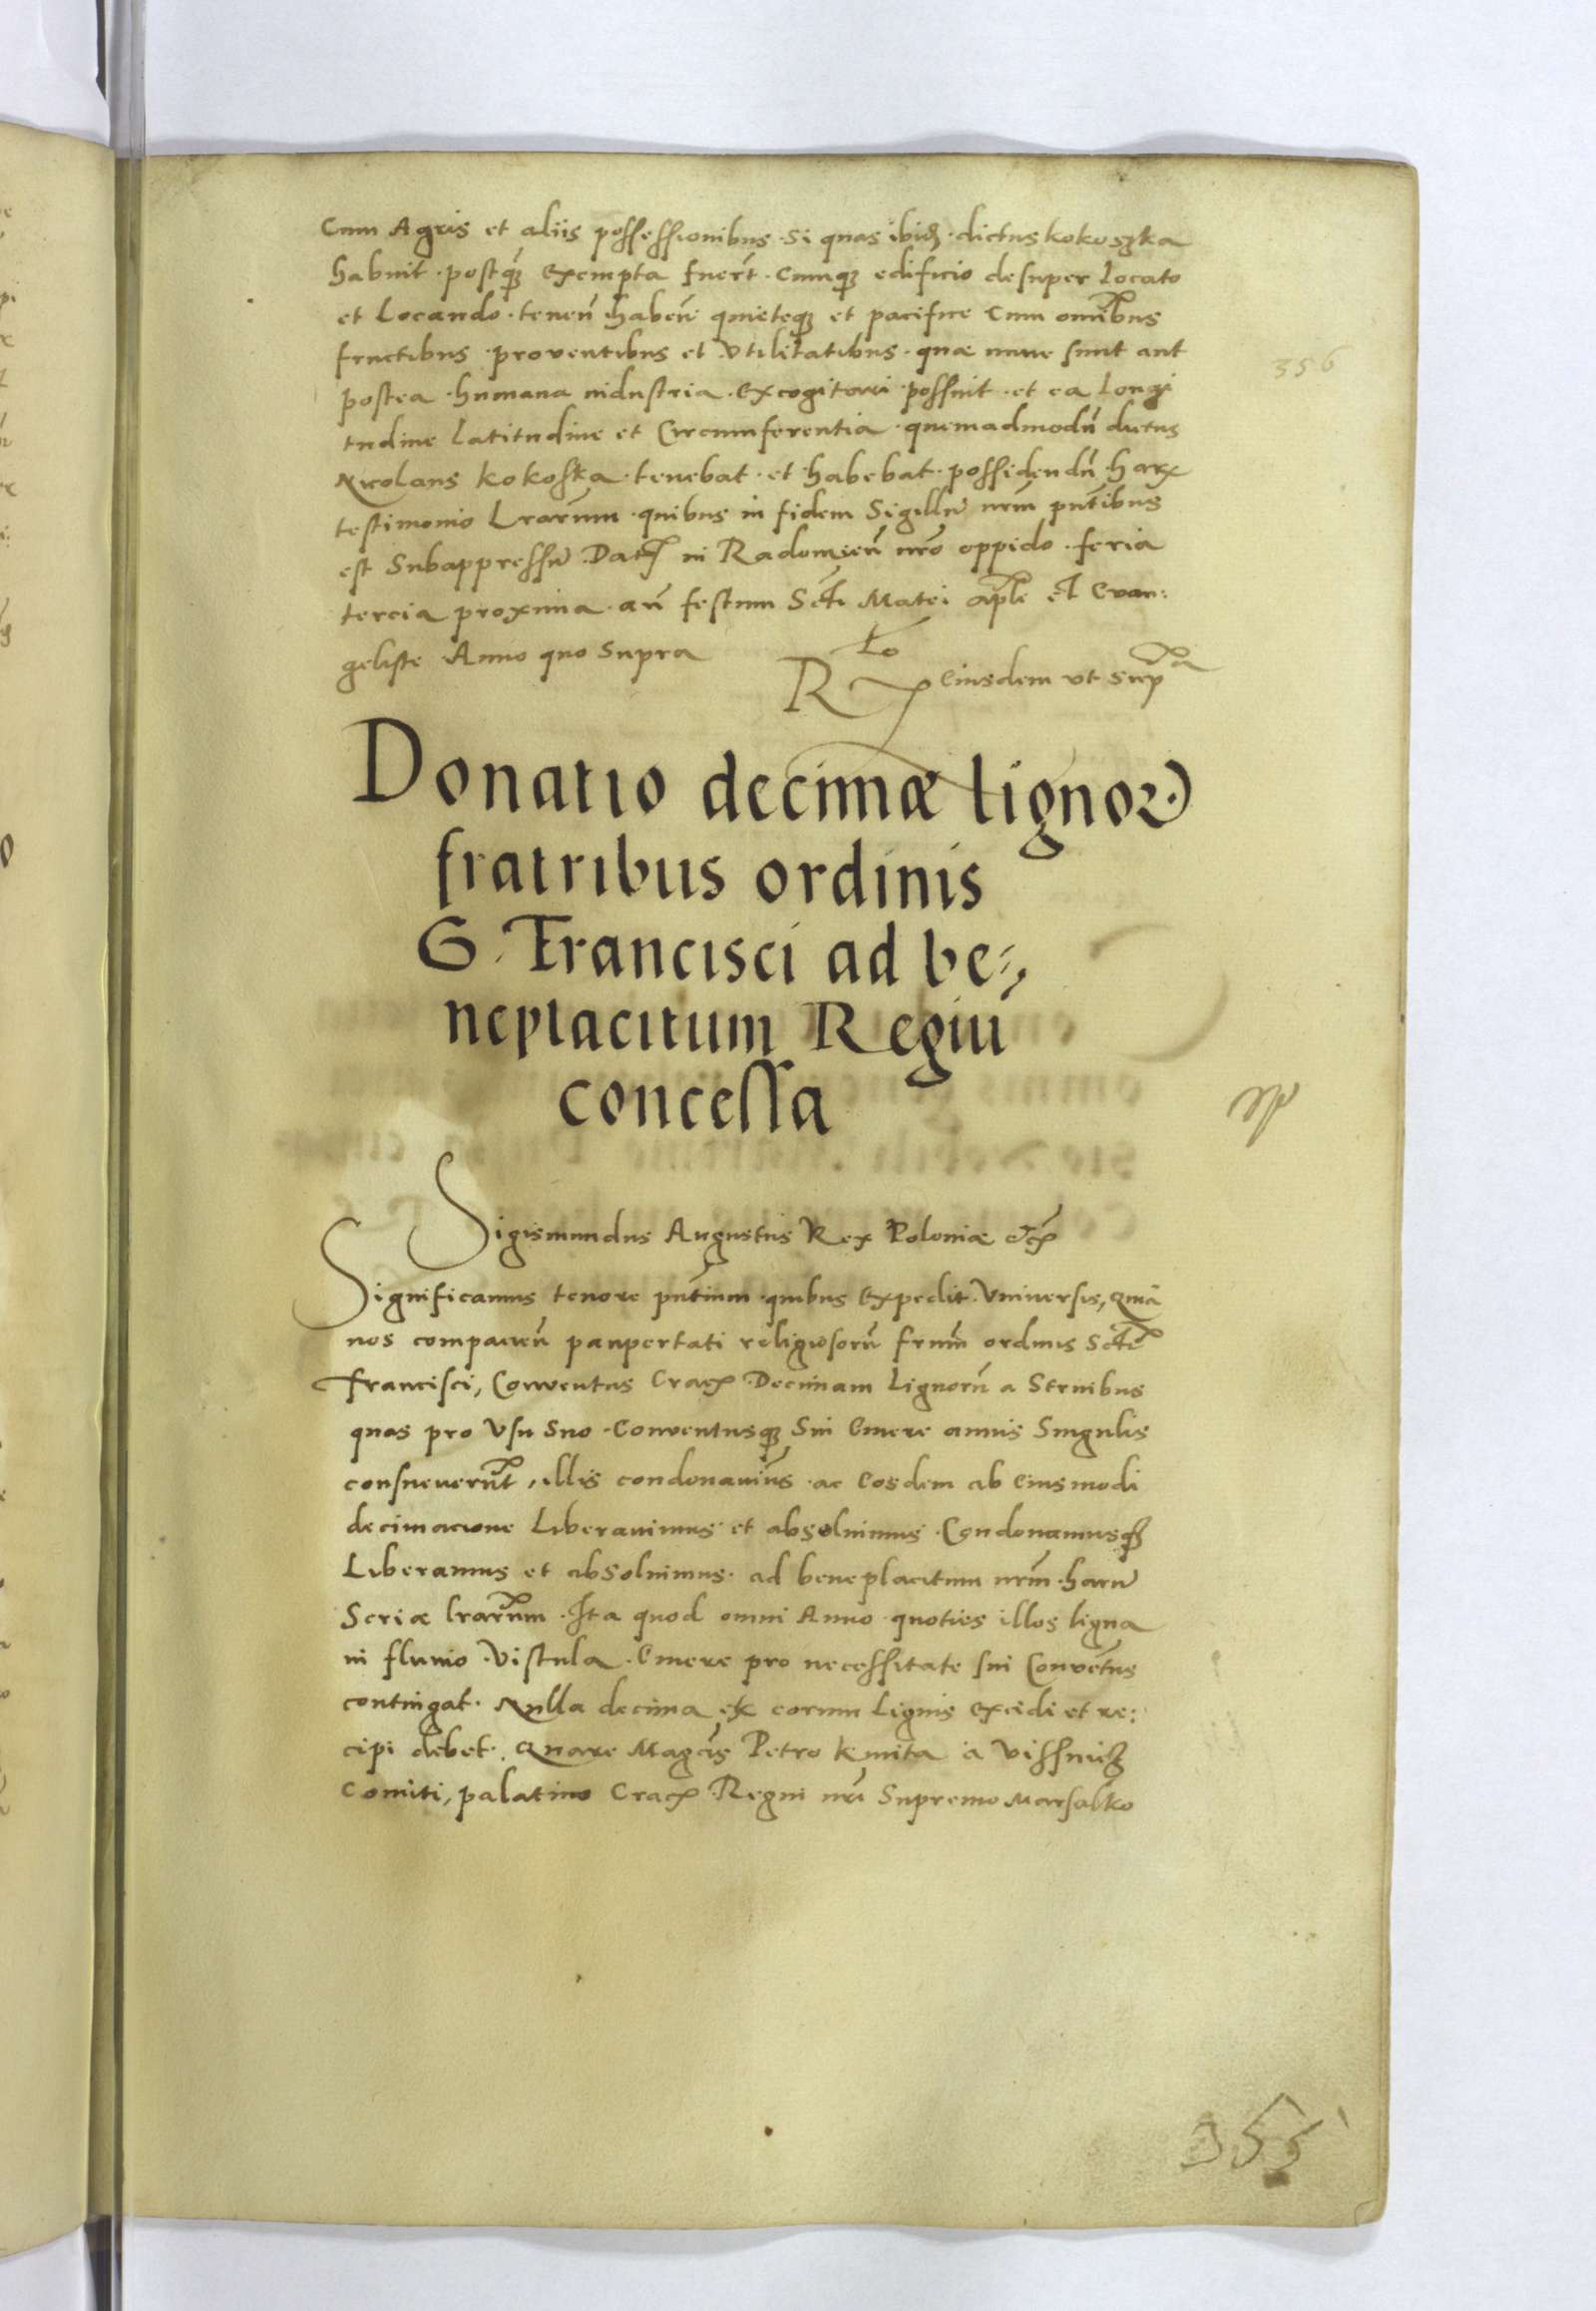 Cum Agris et aliis possessionibus. Si quas ibidē. dictus kokoszka
habuit. postq̃ exempta fuer̃t. cumq; edificio desuper Locato
et Locando. tenen̄ haben̄ quieteq; et pacifice Cum omībus
fructibus proventibus et Vtilitatibus. quæ nunc sunt aut
postea humana industria. excogitari possint. et ea longi
tudine latitudine et Circumferentia. quemadmodū dictus
Nicolaus kokoska. tenebat. et habebat. possidendū har̄
testimonio Lrarūm. quibus in fidem Sigillū nrm̄ pntībus
est Subappressū. Dat̄ in Radomien̄ nrō oppido. feria
tercia proxima. an̄ festum Scti Matei aplē et Evan:
geliste Anno quo Supra
Rlo eiusdem vt supa
356
Donatio decimæ lignoꝝ
fratribus ordinis
S. Francisci ad be=
neplacitum Regiū
concessa
Sigismundus Augustus Rex Poloniæ etc̄
Significamus tenore pntium. quibus expedit. Vniuersis, Quiā
nos compacien̄ paupertati religiosorū frum̄ ordinis Sctī
Francisci, Conventus Crac̄. Decimam Lignorū a Struibus
quas pro Vsu Suo. Conventusq; Sui Emere annis Singulis
consueuerūt, illis condonauim̄us. ac Eosdem ab eiusmodi
decimacione Liberauimus et absoluimus. Condonamusq;
Liberamus et absoluimus. ad beneplacitum nrm̄. harū
Serie lrarūm. Ita quod omni Anno. quoties illos ligna
in fluuio Vistula. Emere pro necessitate sui Convētus
contingat. Nulla decima ex eorum Lignis excidi et re:
cipi debet. Quare Magcīs Petro kmita a Vissnicz
Comiti, palatino Crac̄. Regni nrī Supremo Marsalko
355